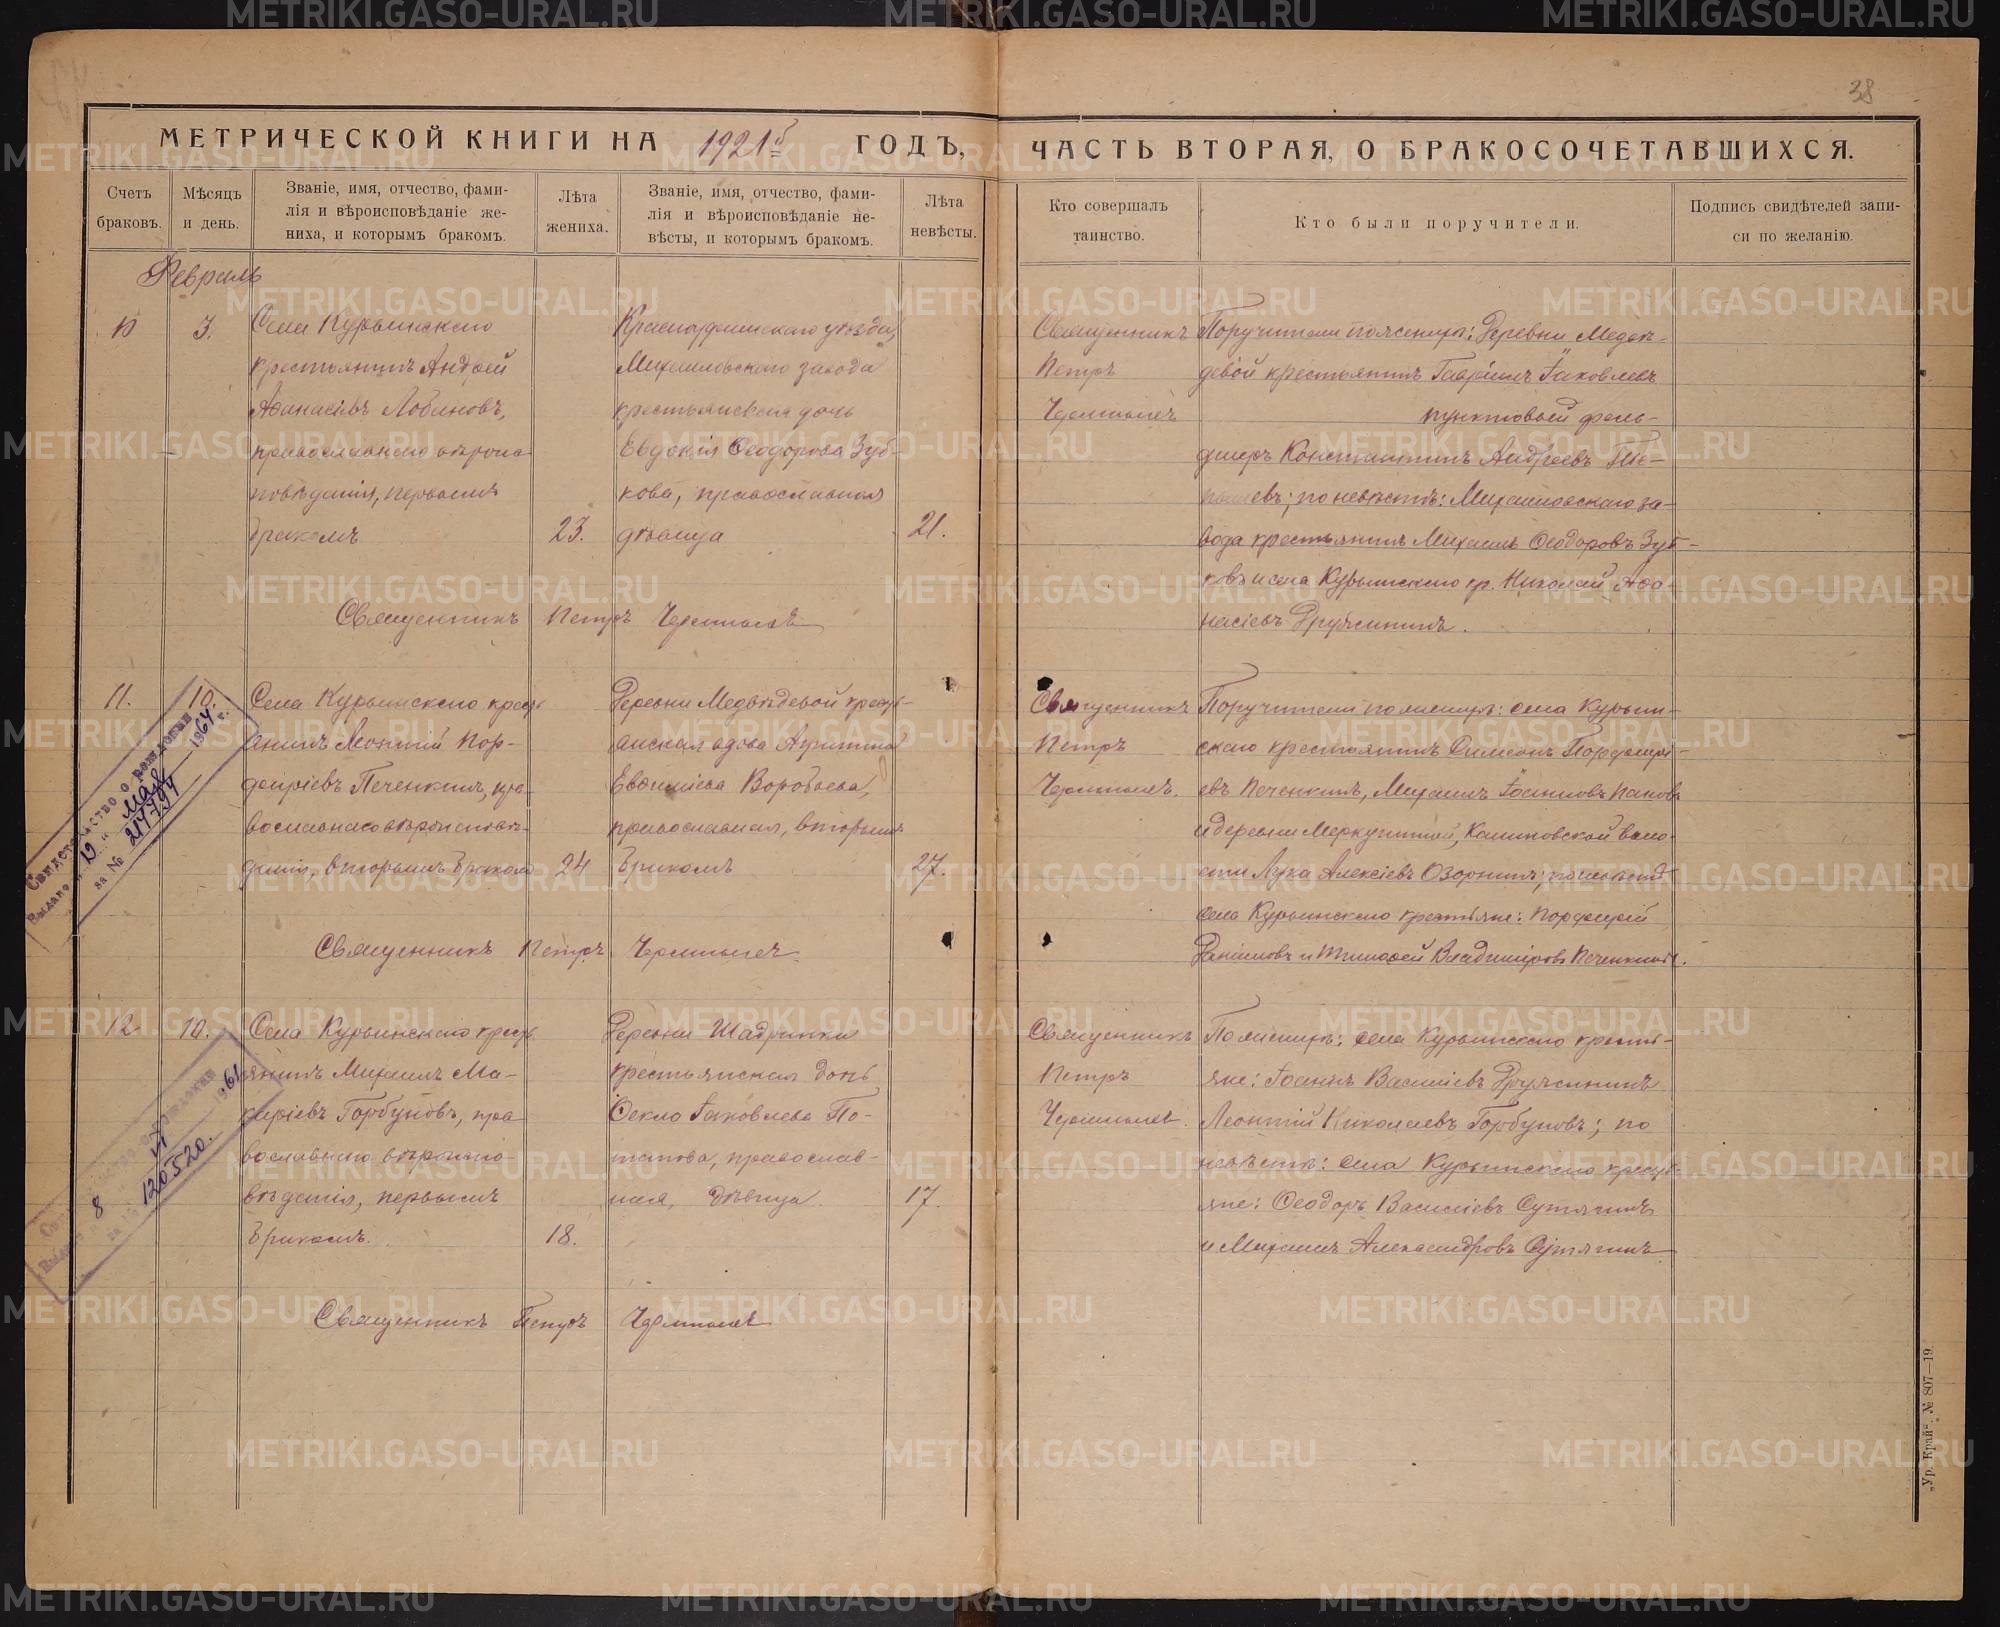 38
МЕТРИЧЕСКОЙ КНИГИ НА 1921й ГОДЪ,
ЧАСТЬ ВТОРАЯ, О БРАКОСОЧЕТАВШИХСЯ.
Счетъ браковъ.
Мѣсяцъ и день.
Званіе, имя, отчество, фами-
лія и вѣроисповѣданіе же-
ниха, и которымъ бракомъ.
Лѣта жениха.
Званіе, имя, отчество, фами-
лія и вѣроисповѣданіе не-
вѣсты, и которымъ бракомъ.
Лѣта невѣсты.
Кто совершалъ таинство.
Кто были поручители.
Подпись свидѣтелей запи-
си по желанію.
Февраль
10
3.
Села Курьинскаго
крестьянинъ Андрей
Аѳанасіевъ Лобановъ,
православнаго вѣроис
повѣданія, первымъ
бракомъ
23.
Красноуфимскаго уѣзда,
Михайловскаго завода
крестьянская дочь
Евдокія Ѳеодорова Зуб-
кова, православная
дѣвица
21.
Священникъ
Петръ
Поручители по жениху: Деревни Медвѣ-
девой крестьянинъ Гавріилъ Іаковлевъ
пунктовый фель-
дшеръ Константинъ Андреевъ
по невѣстѣ: Михайловскаго за-
вода крестьянинъ Михаилъ Ѳеодоровъ Зуб-
ковъ и села Курьинскаго кр. Николай Аѳа-
насіевъ Дружининъ.
Священникъ Петръ
11.
10.
Села Курьинскаго крест
янинъ Леонтій Пор-
фиріевъ Печенкинъ, пра-
вославнаго вѣроисповѣ-
данія, вторымъ бракомъ
24
Деревни Медвѣдевой крест-
янская вдова
Евѳиміева Воробьева,
православная, вторымъ
бракомъ
27.
Священникъ
Петръ
Поручители по жениху: села Курьин-
скаго крестьянинъ Симеонъ Порфирі-
евъ Печенкинъ, Михаилъ Іоанновъ Пановъ
и деревни
Лука Алексіевъ Озорнинъ; по невѣстѣ
села Курьинскаго крестьяне: Порфирій
Даніиловъ и Тимоѳей Владиміровъ Печенкины.
Священникъ Петръ
Свидетельство о рождении
Выдано „12“ мая 1964 г.
за № 217794
12.
10.
Села Курьинскаго крест
янинъ Михаилъ Ма-
каріевъ Горбуновъ, пра-
вославнаго вѣроиспо-
вѣданія, первымъ
бракомъ.
18.
Деревни Шадринки
крестьянская дочь
Ѳекла Іаковлева По-
тапова, православ-
ная, дѣвица.
17.
Священникъ
Петръ
По жениху: села Курьинскаго кресть-
яне: Іоаннъ Василіевъ Дружининъ
Леонтій Николаевъ Горбуновъ; по
невѣстѣ: села Курьинскаго крест-
яне: Ѳеодоръ Василіевъ Сутягинъ
и Михаилъ Александровъ Сутягинъ.
Священникъ Петръ
8 VI 1961
120520.
„Ур. Край“. № 807—19.
METRIKI.GASO-URAL.RU